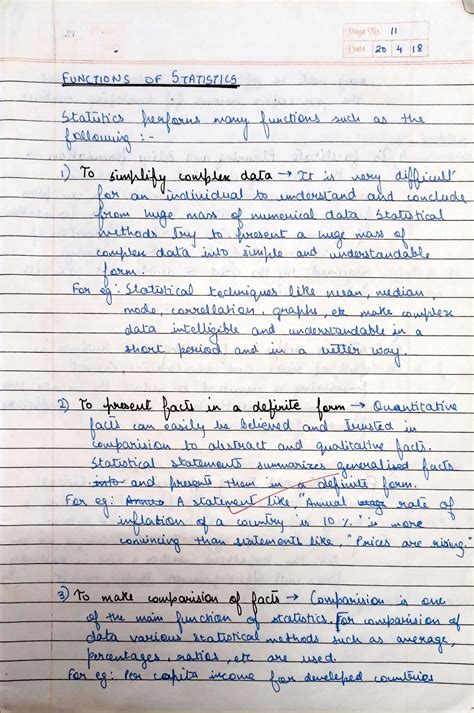 Page No. 11
Date 20 4 18
FUNCTIONS OF STATISTICS
Statistics performs many functions such as the
following :-
1) To simplify complex data → It is very difficult
for an individual to understand and conclude
from huge mass of numerical data. Statistical
methods try to present a huge mass of
complex data into simple and understandable
form.
For eg: Statistical techniques like mean, median,
mode, correllation, graphs, etc make complex
data intelligible and understandable in a
short period and in a better way.
2) To present facts in a definite form → Quantitative
facts can easily be believed and trusted in
comparision to abstract and qualitative facts.
Statistical statements summarizes generalised facts
into and presents them in a definite form.
For eg: Annua A statement like, "Annual rate of
inflation of a country is 10 %" is more
convincing than statements like, "Prices are rising."
3) To make comparision of facts → Comparision is one
of the main function of statistics. For comparision of
data various statistical methods such as average,
percentages, ratios, etc are used.
For eg: Per capita income for developed countries